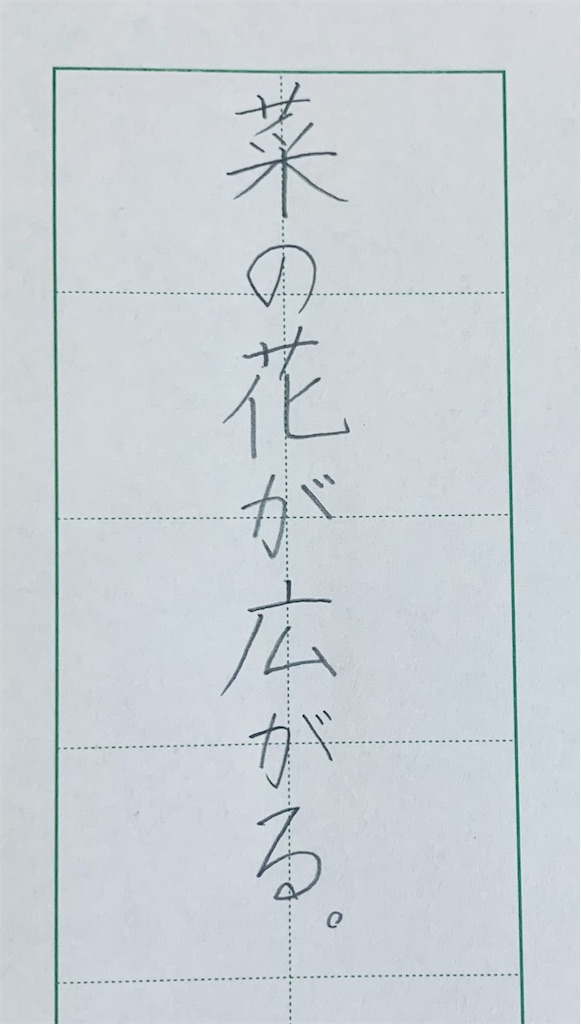 菜の花が広がる。